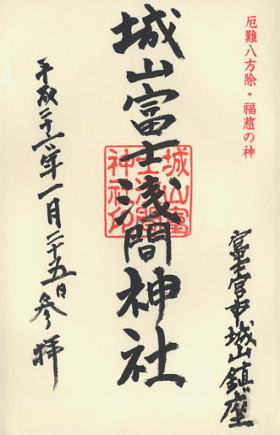 厄難八方除・福慈の神
富士宮市城山鎮座
城山富士淺間神社
城山富士浅間神社印
平成二十六年一月二十五日参拝